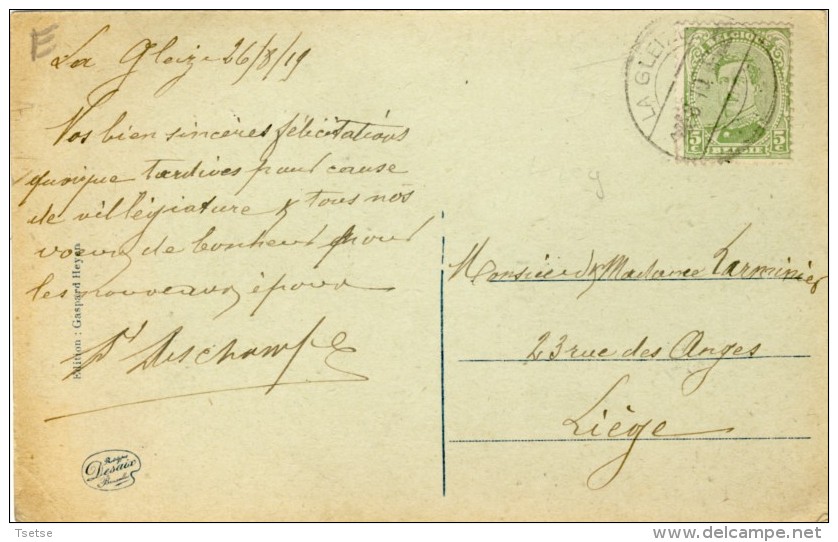 E
La Gleize 26/8/19
Vos bien sincères félicitations
quoique tardives pour cause
de villégiature & tous nos
voeux de bonheur pour
les nouveaux époux
Deschamps
Edition : Gaspard Heyen
Desaix
LA GLEIZE
BELGIQUE
5c 5c
BELGIË
Monsieur & Madame Larminier
23 rue des Anges
Liège
Tsetse
www.delcampe.net